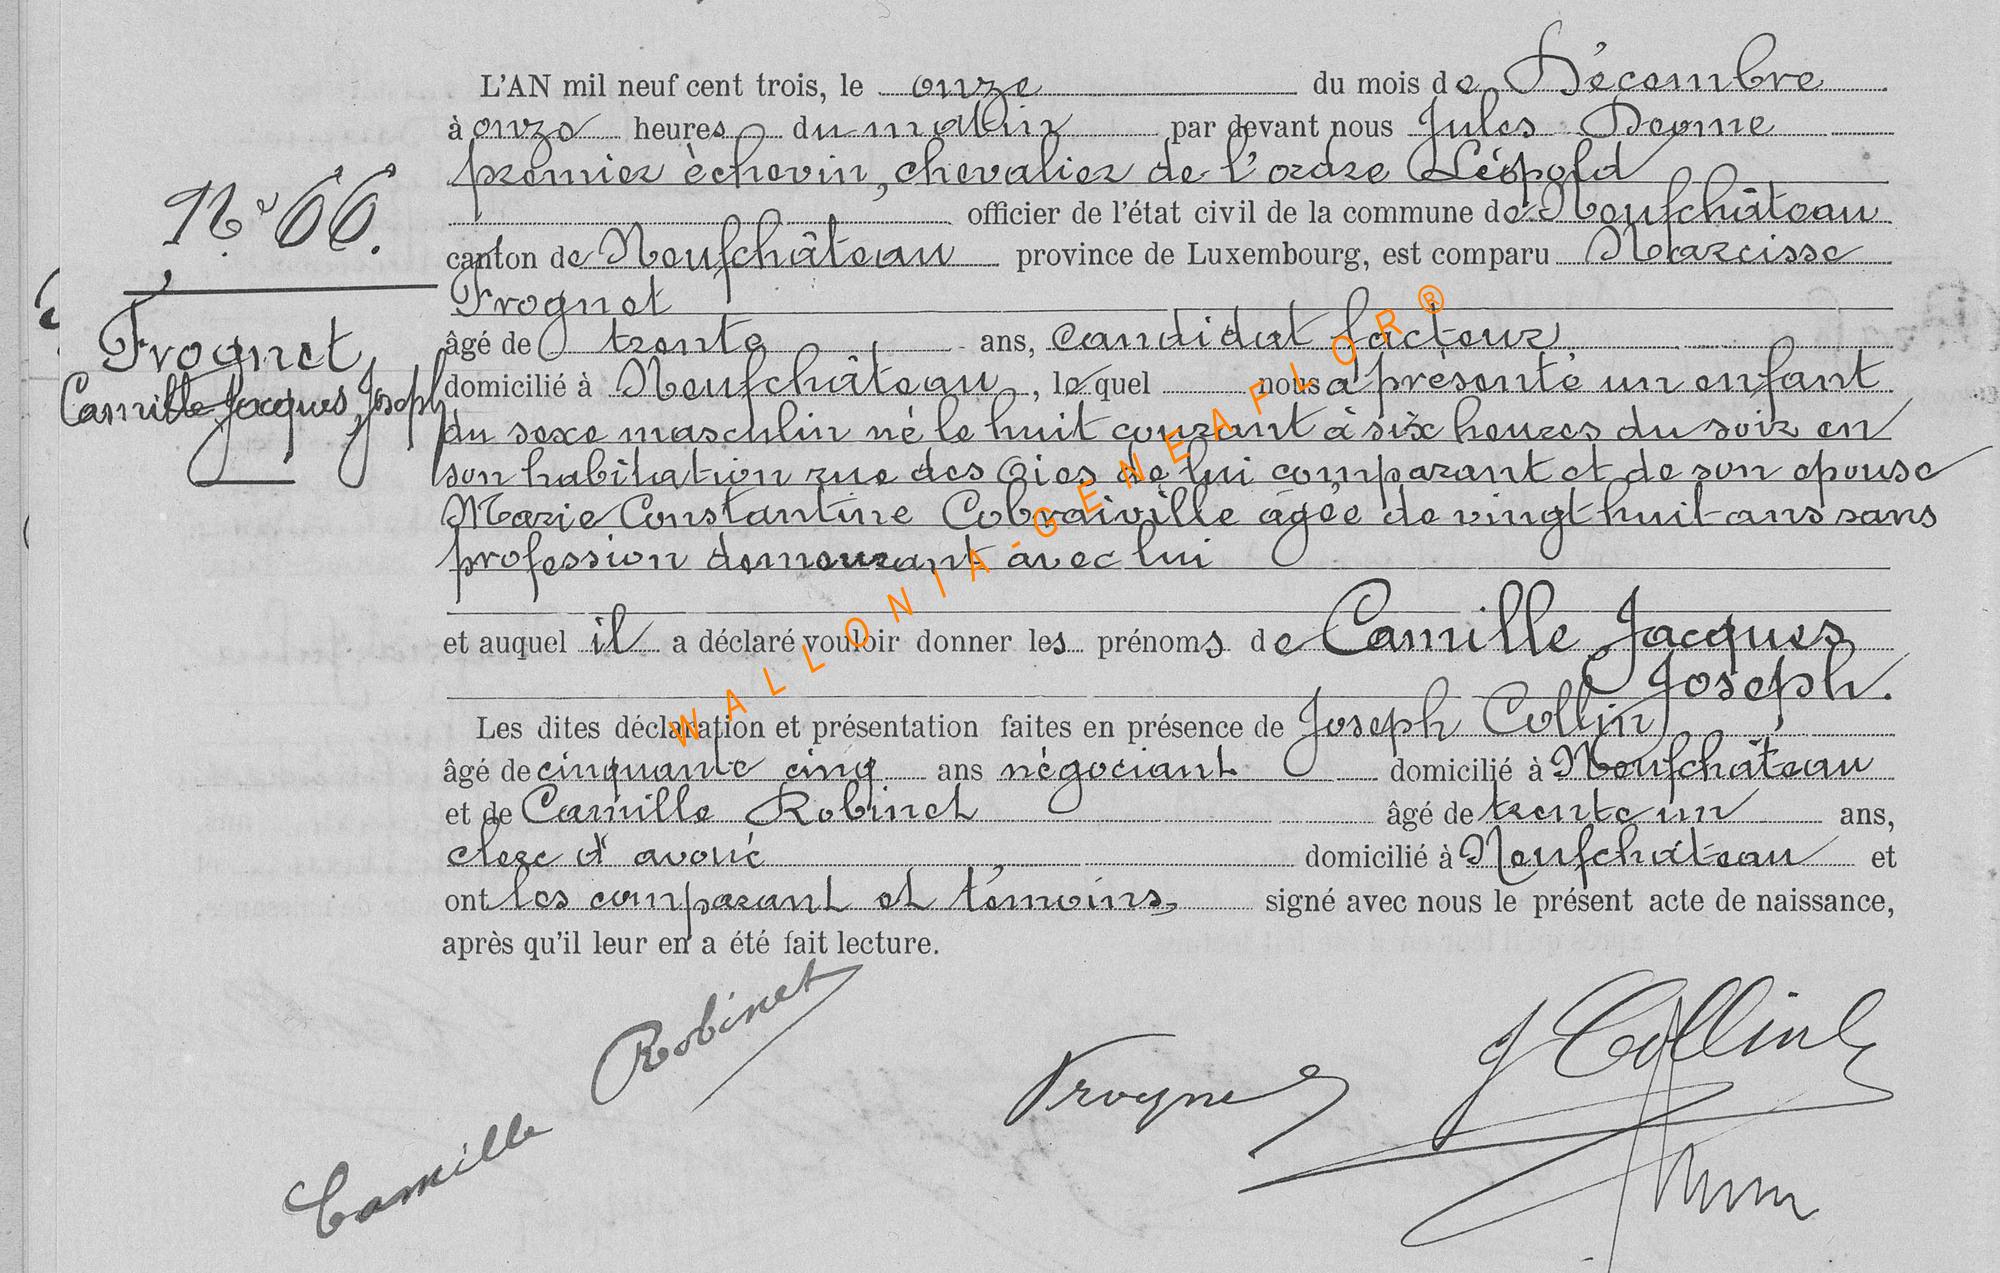 L'AN mil neuf cent trois, le onze du mois de Décembre
à onze heures du matin par devant nous Jules
premier échevin, chevalier de l'ordre Léopold
officier de l'état civil de la commune de Neufchâteau
canton de Neufchâteau province de Luxembourg, est comparu Narcisse
Frognet
âgé de trente ans, candidat facteur,
domicilié à Neufchâteau, lequel nous a présenté un enfant
du sexe masculin né le huit courant à six heures du soir en
son habitation rue des Oies de lui comparant et de son epouse
Marie Constantine Cobraiville agée de vingt huit ans sans
profession demeurant avec lui
et auquel il a déclaré vouloir donner les prénoms de Camille Jacques
Joseph.
Les dites déclaration et présentation faites en présence de Joseph Collin
âgé de cinquante cinq ans négociant domicilié à Neufchâteau
et de Camille Robinet âgé de trente un ans,
clerc d'avoué domicilié à Neufchâteau et
ont les comparant et témoins, signé avec nous le présent acte de naissance,
après qu'il leur en a été fait lecture.
N° 66.
Frognet
Camille Jacques Joseph
Camille Robinet
Frognet
J Collin
WALLONIA-GENEAFLOR®